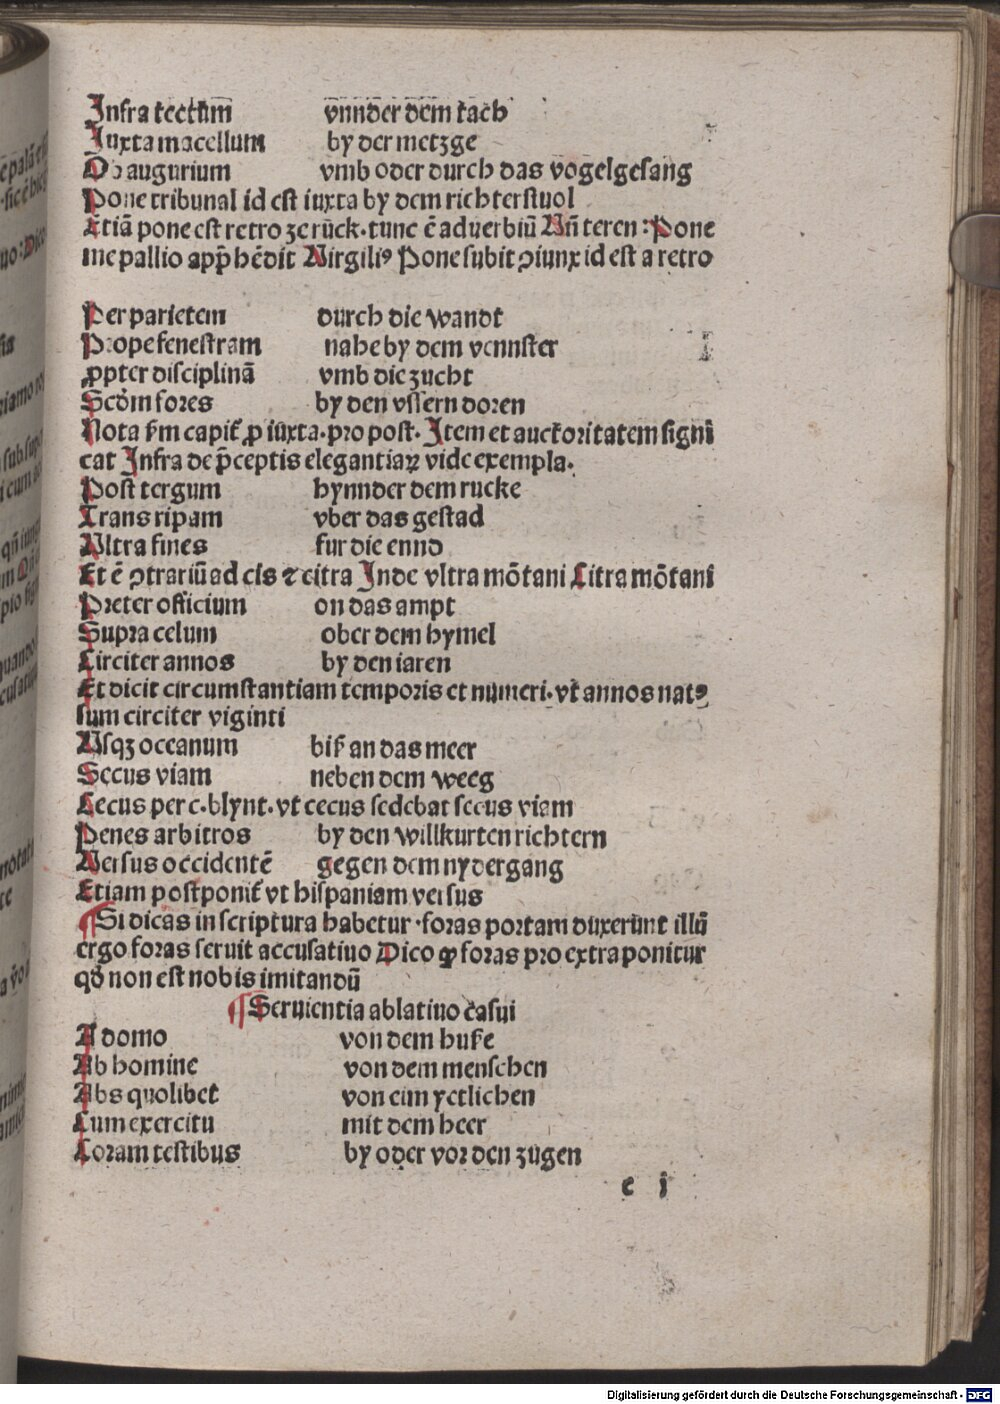 Infra tectum vnnder dem tach
Iuxta macellum by der metzge
Ob augurium vmb oder durch das vogelgesang
Pone tribunal id est iuxta by dem richterstuol
Etiã pone est retro ze rück. tunc ē aduerbiū Vñ teren : Pone
me pallio app̄hēdit Virgiliꝰ Pone subit ꝯiunx id est a retro
Per parietem durch die wandt
Prope fenestram nahe by dem vennster
ꝓpter disciplinã vmb die zucht
Scd̓m fores by den vssern doren
Nota fm capit̄ ꝓ iuxta. pro post. Item et auctoritatem signi
cat Infra de p̄ceptis elegantiaꝝ vide exempla.
Post tergum hynnder dem rucke
Trans ripam vber das gestad
Vltra fines fur die ennd
Et ē ꝯtrariū ad cis ⁊ citra Inde vltra mōtani Citra mōtani
Preter officium on das ampt
Supra celum ober dem hymel
Circiter annos by den iaren
Et dicit circumstantiam temporis et numeri. vt annos natꝰ
sum circiter viginti
Vsqꝫ oceanum biß an das meer
Secus viam neben dem weeg
Cecus per c. blynt. vt cecus sedebat secus viam
Penes arbitros by den willkurten richtern
Versus occidentē gegen dem nydergang
Etiam postponit̄ vt hispaniam versus
¶ Si dicas in scriptura habetur . foras portam duxerunt illū
ergo foras seruit accusatiuo Dico ꝙ foras pro extra ponitur
qd̓ non est nobis imitandū
¶ Seruientia ablatiuo casui
A domo von dem huße
Ab homine von dem menschen
Abs quolibet von eim yetlichen
Cum exercitu mit dem heer
Coram testibus by oder vor den zugen
e j
Digitalisierung gefördert durch die Deutsche Forschungsgemeinschaft - DFG